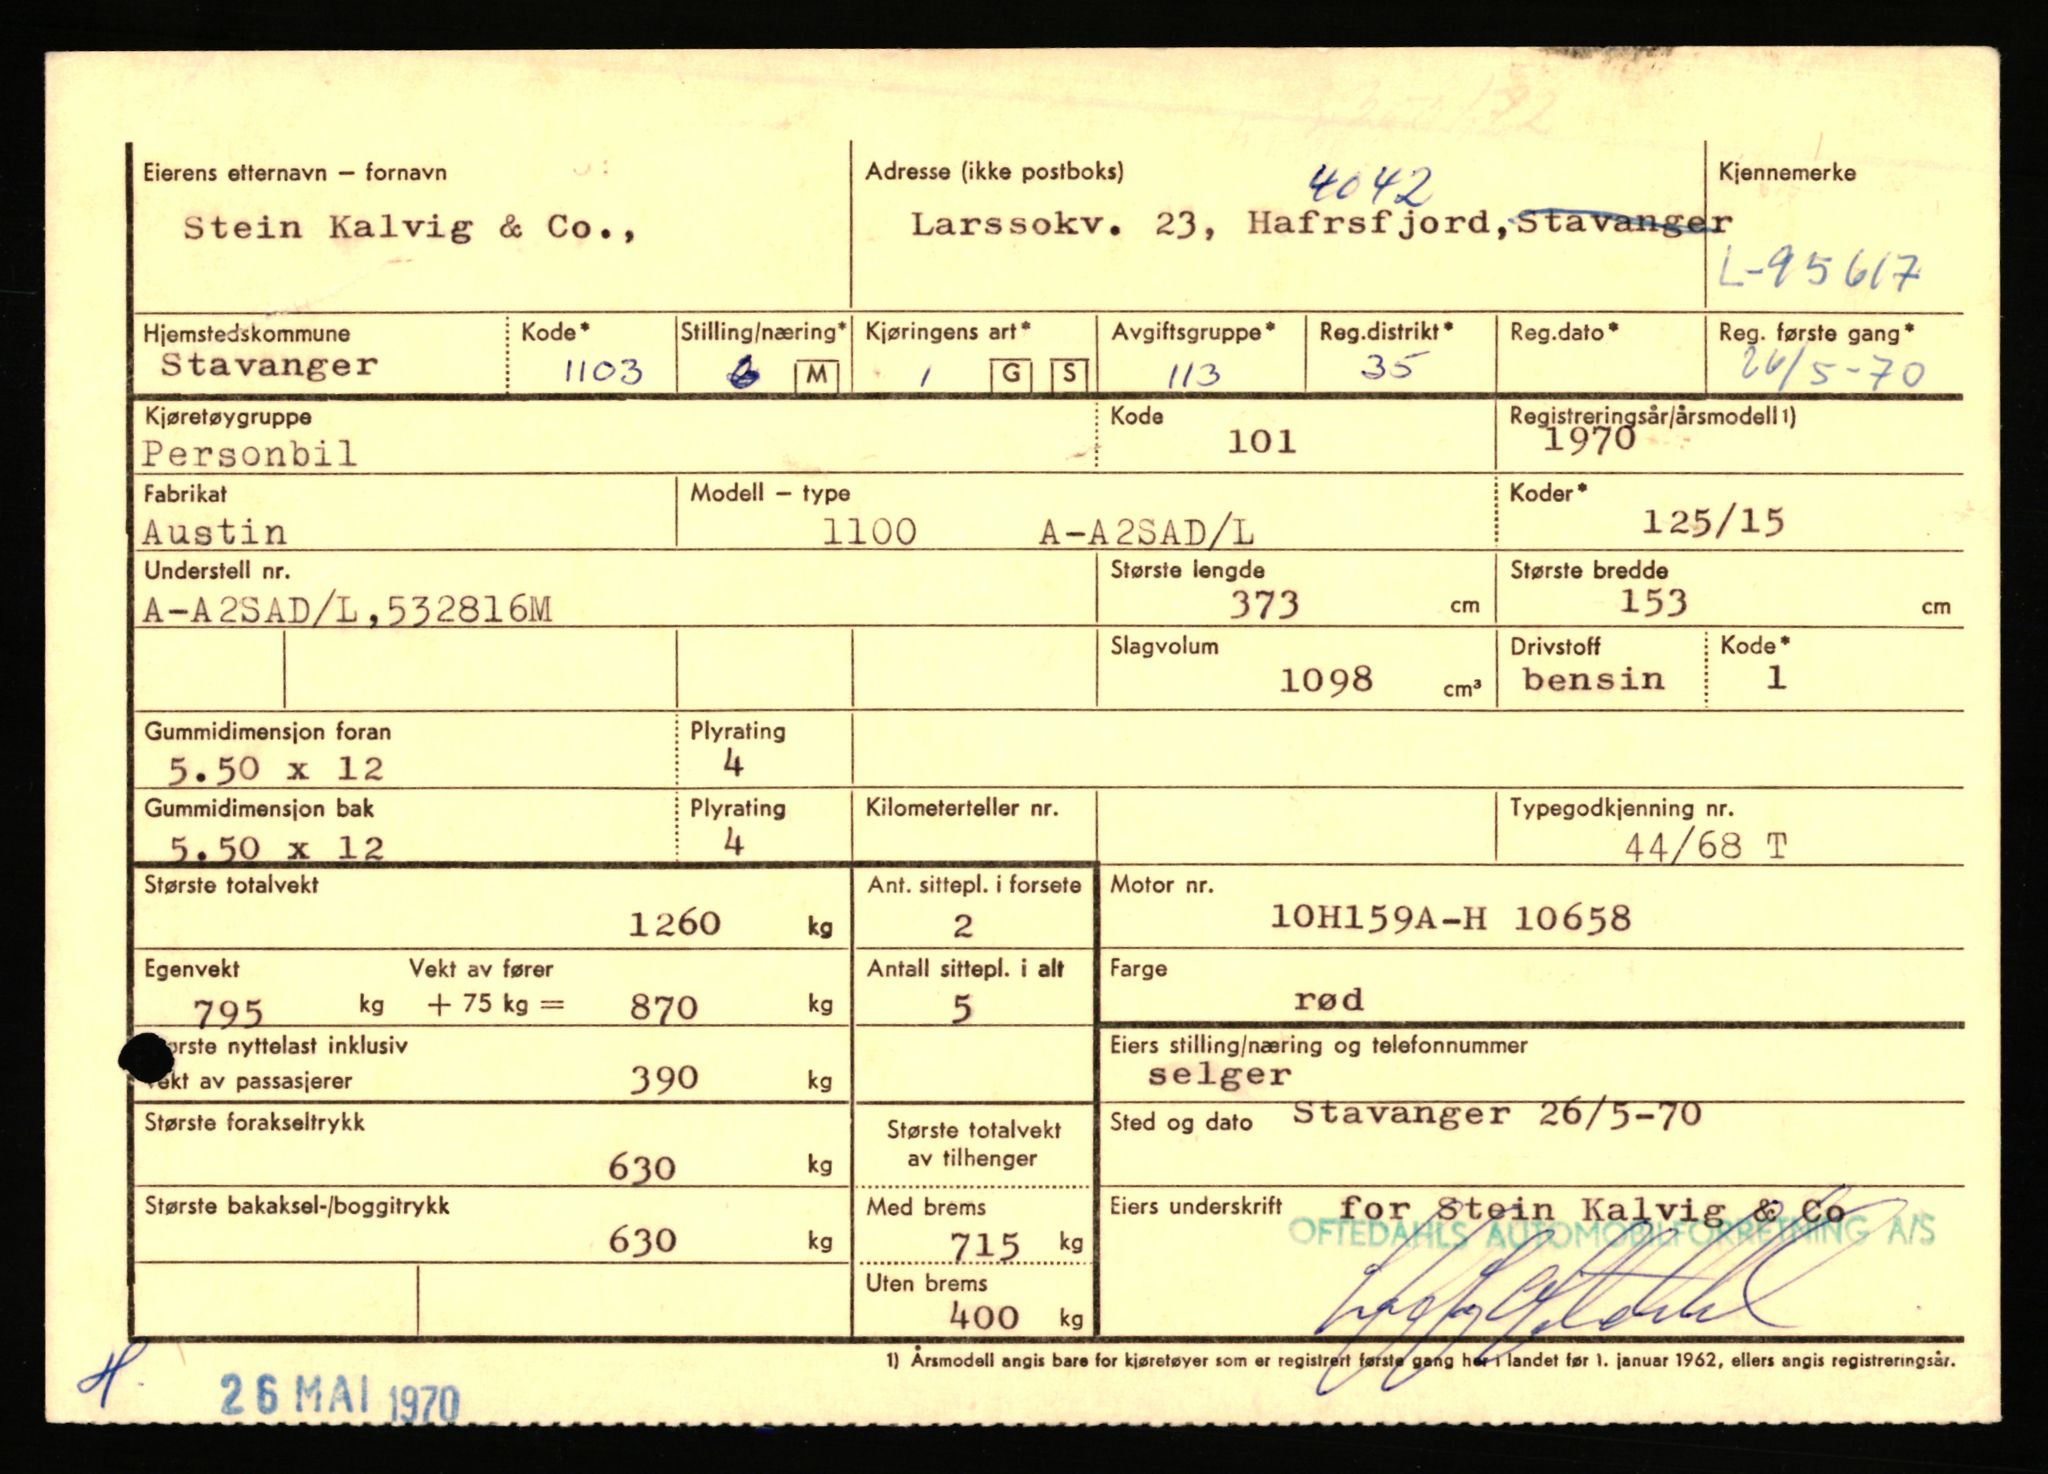 Eierens etternavn – fornavn
Stein Kalvig & Co.,
Adresse (ikke postboks)
4042
Larssokv. 23, Hafrsfjord, Stavanger
Kjennemerke
L-95617
Hjemstedskommune
Stavanger
Kode*
1103
Stilling/næring*
M
Kjøringens art*
1 G S
Avgiftsgruppe*
113
Reg.distrikt*
35
Reg.dato*
Reg. første gang*
26/5-70
Kjøretøygruppe
Personbil
Kode
101
Registreringsår/årsmodell 1)
1970
Fabrikat
Austin
Modell – type
1100 A-A2SAD/L
Koder*
125/15
Understell nr.
A-A2SAD/L,532816M
Største lengde
373 cm
Største bredde
153 cm
Slagvolum
1098 cm³
Drivstoff
bensin
Kode*
1
Gummidimensjon foran
5.50 x 12
Plyrating
4
Gummidimensjon bak
5.50 x 12
Plyrating
4
Kilometerteller nr.
Typegodkjenning nr.
44/68 T
Største totalvekt
1260 kg
Ant. sittepl. i forsete
2
Motor nr.
10H159A-H 10658
Egenvekt
795 kg
Vekt av fører
+ 75 kg = 870 kg
Antall sittepl. i alt
5
Farge
rød
ørste nyttelast inklusiv
vekt av passasjerer
390 kg
Eiers stilling/næring og telefonnummer
selger
Største forakseltrykk
630 kg
Største totalvekt
av tilhenger
Sted og dato Stavanger 26/5-70
Største bakaksel-/boggitrykk
630 kg
Med brems
715 kg
Uten brems
400 kg
Eiers underskrift for Stein Kalvig & Co
OFTEDAHLS AUTOMOBILFORRETNING A/S
1) Årsmodell angis bare for kjøretøyer som er registrert første gang her i landet før 1. januar 1962, ellers angis registreringsår.
H.
26 MAI 1970